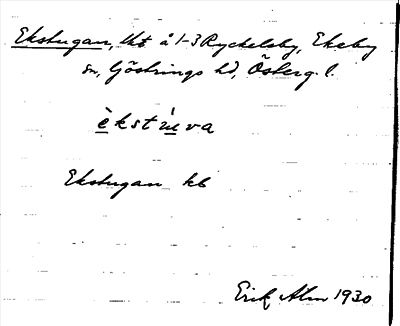 Ekstugan, lht å 1-3 Ryckelsby, Ekeby
sn, Göstrings hd, Österg. l.
èkstùva
Ekstugan kb
Erik Alm 1930